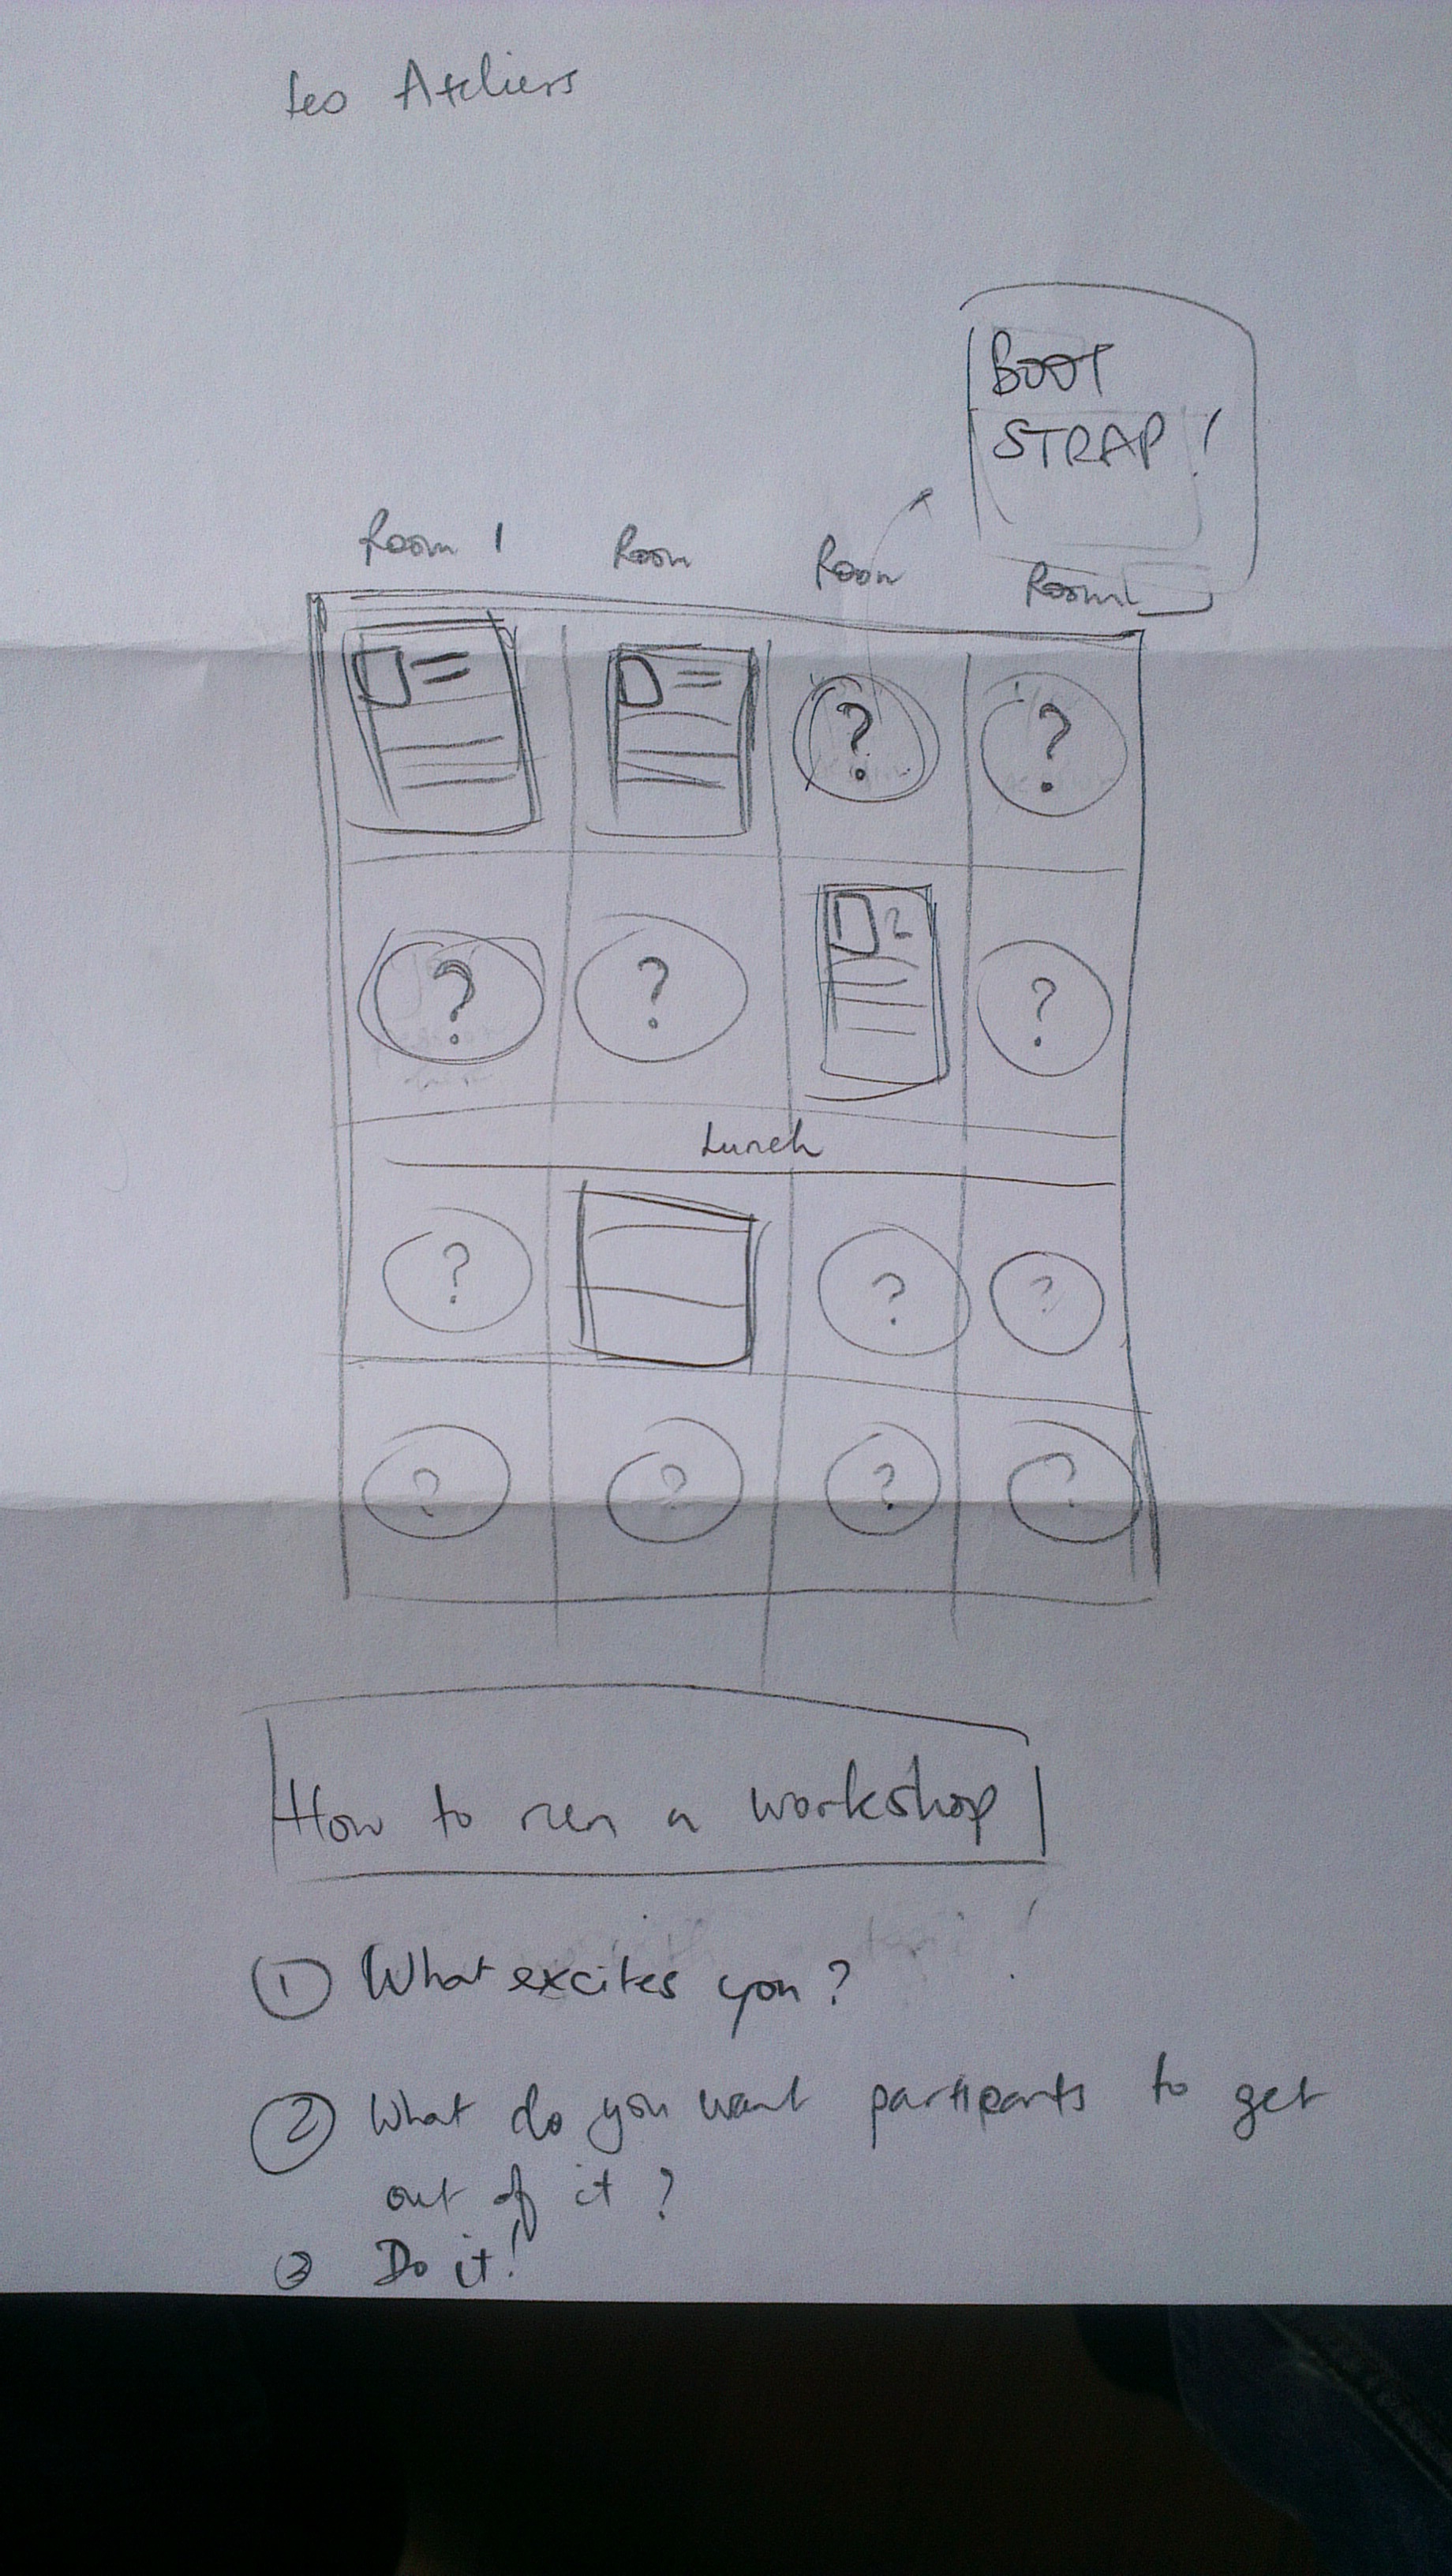 Les Ateliers
BOOT
STRAP!
Room 1 Room Room Room
? ?
? ? 2 ?
Lunch
? ? ?
? ? ? ?
How to run a workshop
1 What excites you?
2 What do you want participants to get
out of it?
3 Do it!